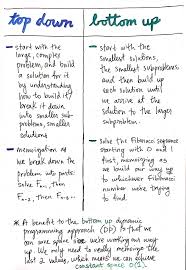 top down
bottom up
- start with the
large, complex
problem, and build
a solution for it
by understanding
how to build it /
break it down
into smaller sub-
problems, smaller
solutions
- start with the
smallest solutions,
the smallest subproblems
and then build up
each solution until
we arrive at the
solution to the larger
subproblem.
- memoization as
we break down the
problem into parts:
solve Fn-1, then
Fn-2, then Fn-3...
- solve the Fibonacci sequence
starting with 0 and 1
first, memoizing as
we build our way up
to whichever Fibonacci
number we're trying to
find
* A benefit to the bottom up dynamic
programming approach (DP) is that we
can save space as we're working our way
up. We only need to really memoize the
last 2 values, which means we can achieve
constant space O(1).